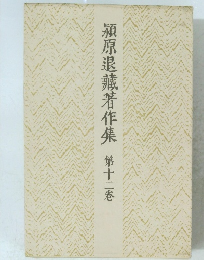 潁原退蔵著作集 第十二巻